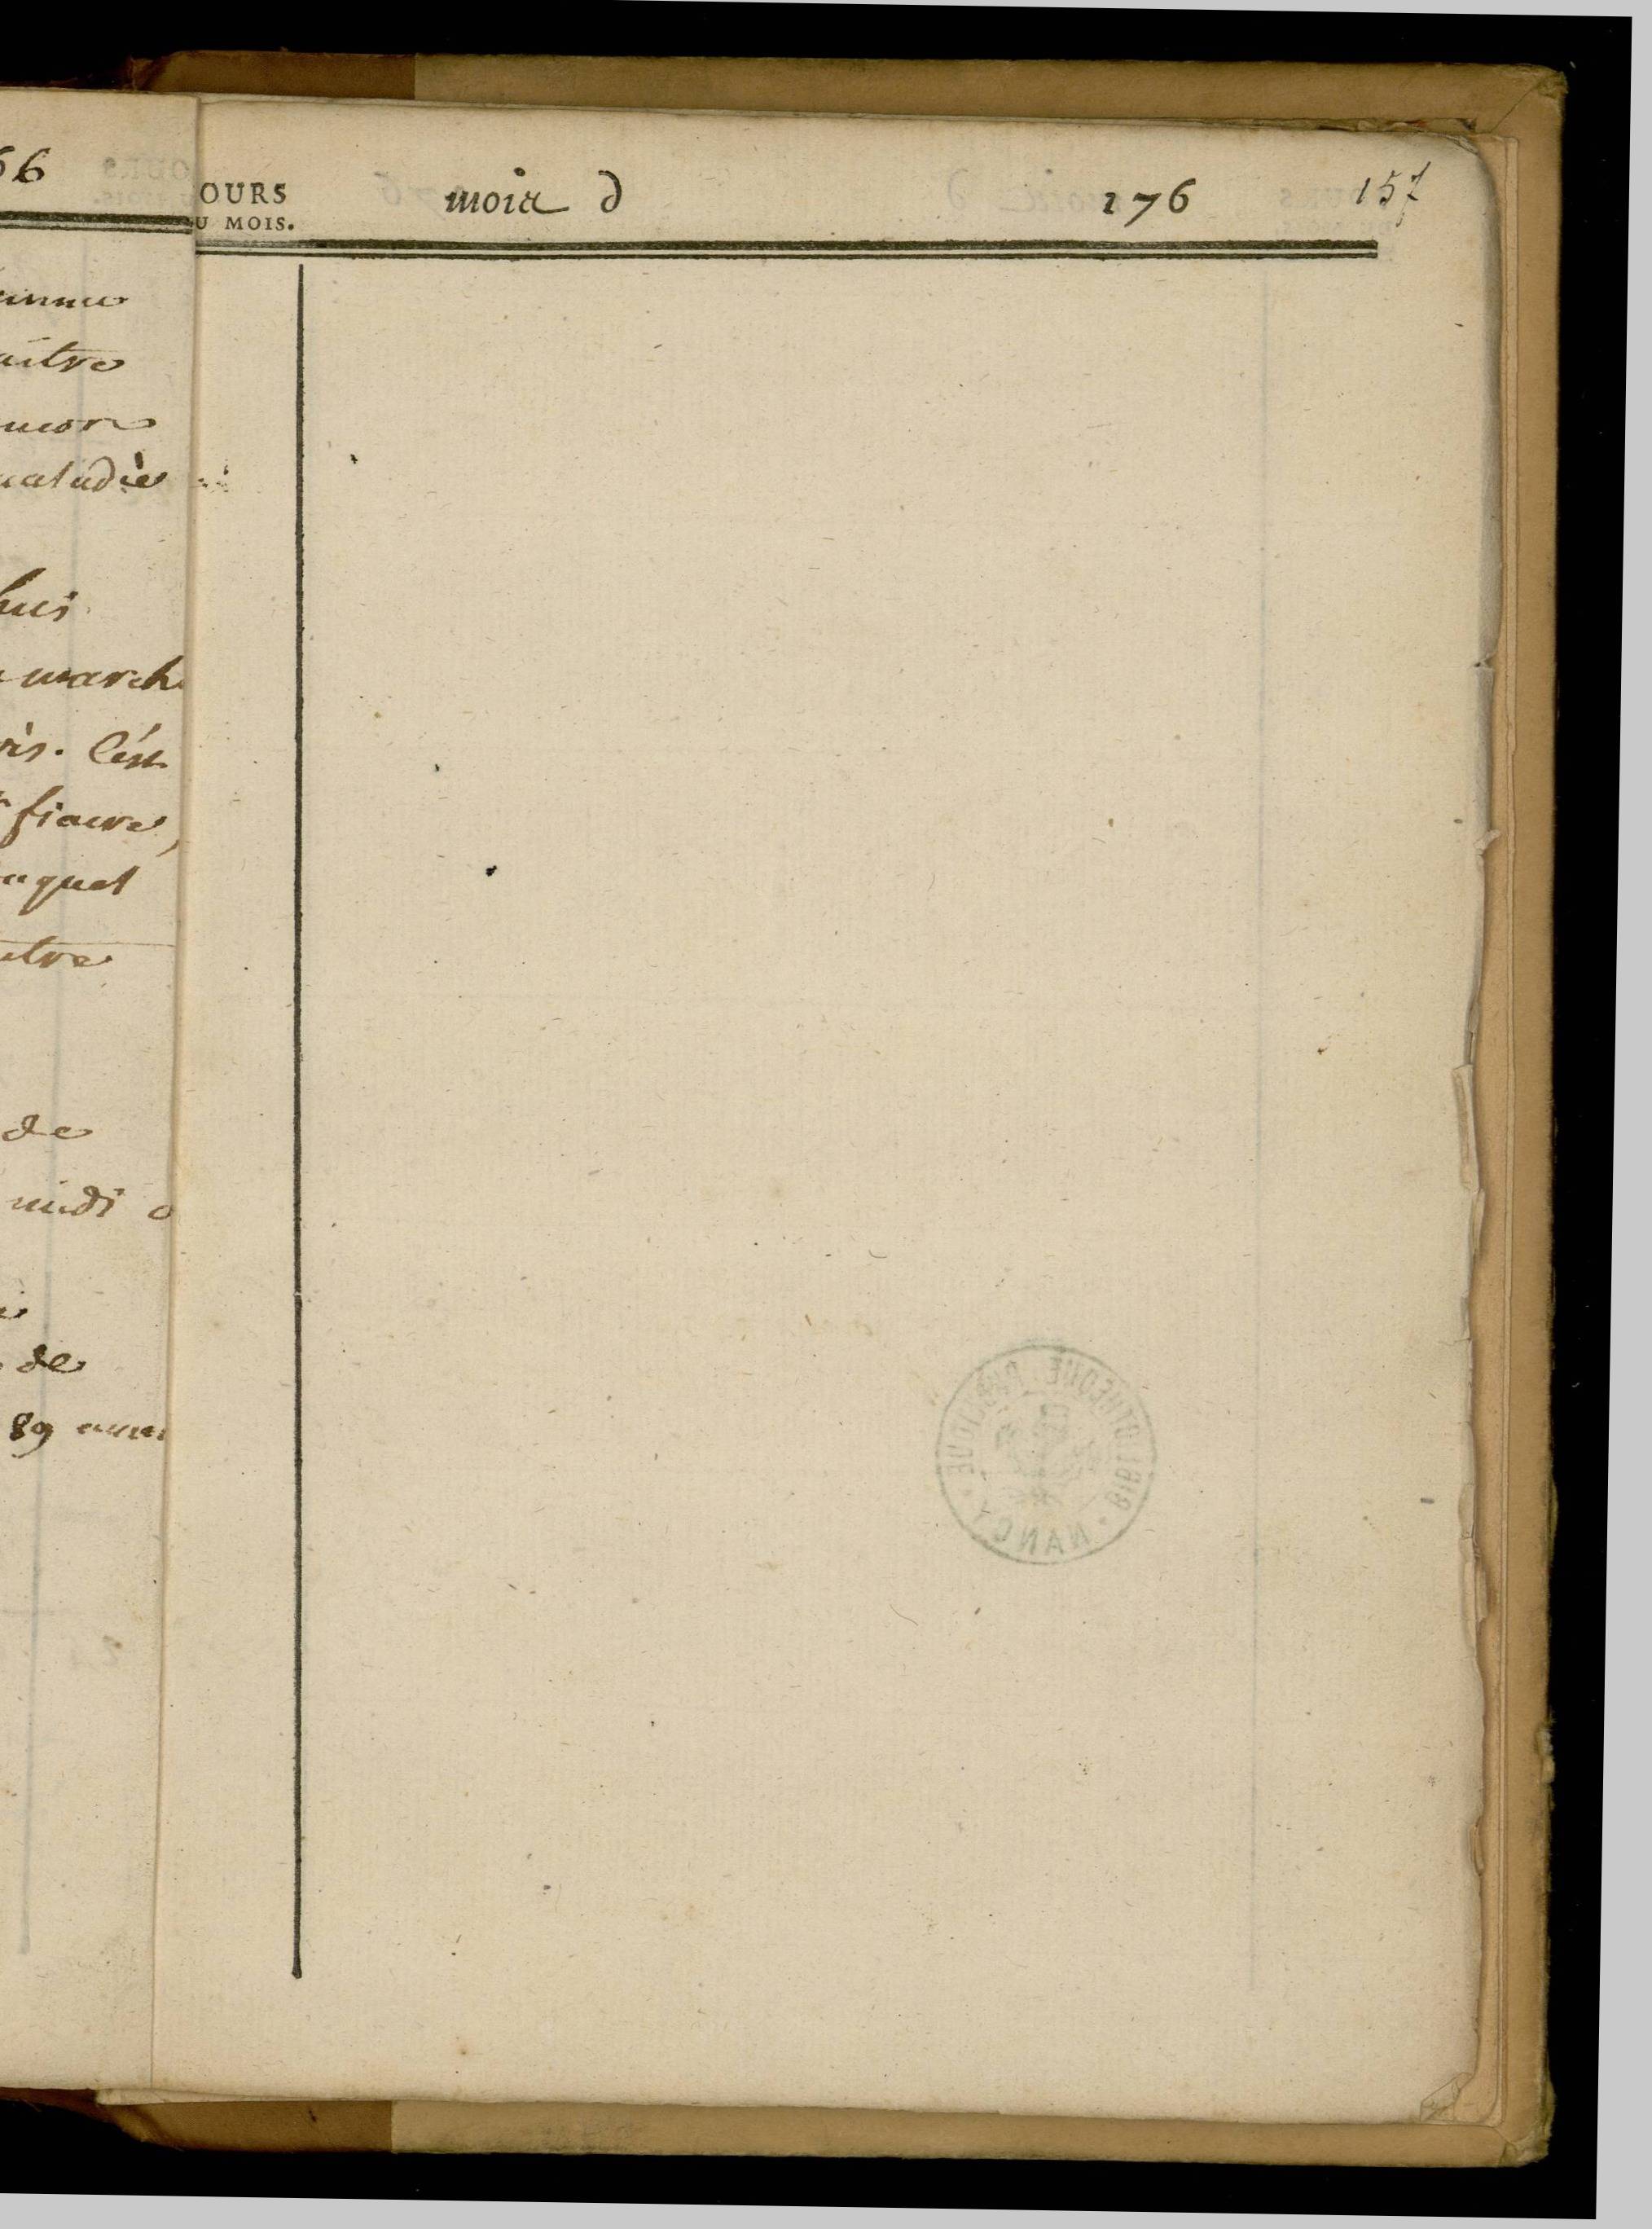 66
OURS
U MOIS.
mois d
176
157
aitre
maladie
lui
march
ris. C'est
fiacre,
uquet
etre
de
midi o
de
89 anni
BIBLIOTHEQUE PUBLIQUE
NANCY